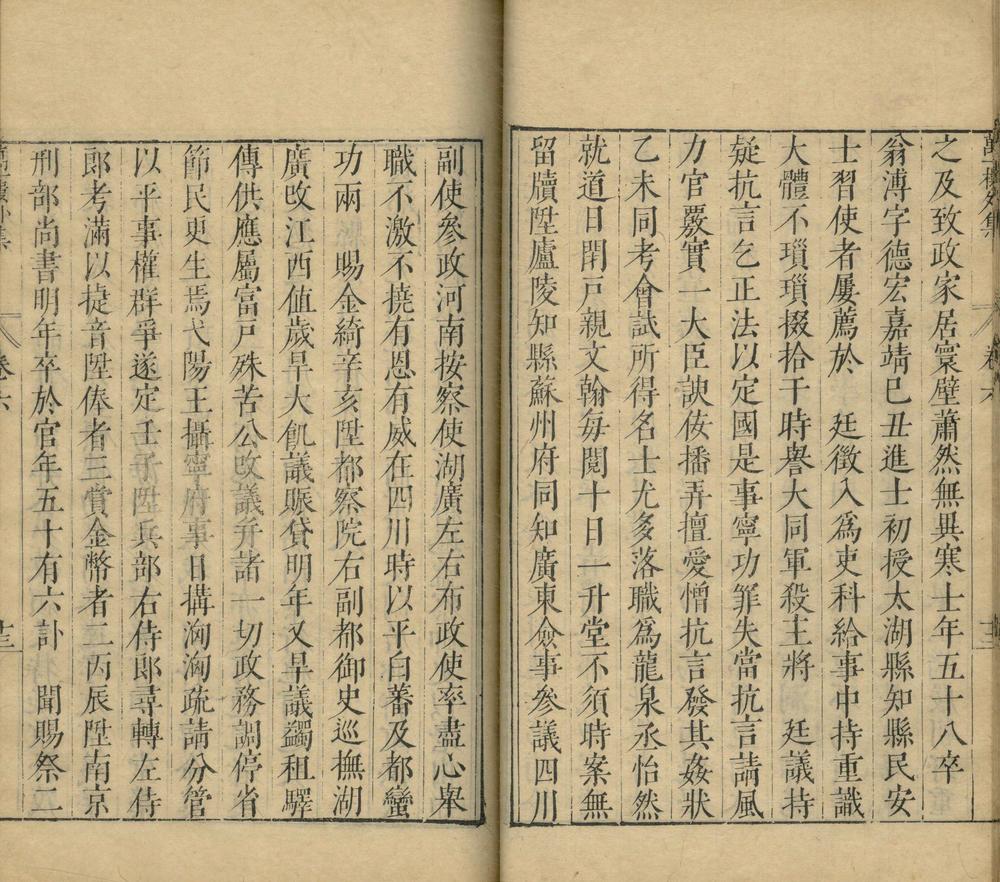 萬一樓外集
卷六
之及致政家居寰壁蕭然無異寒士年五十八卒
翁溥字德宏嘉靖己丑進士初授太湖縣知縣民安
士習使者屢薦於　廷徵入爲吏科給事中持重識
大體不瑣瑣掇拾干時譽大同軍殺主將　廷議持
疑抗言乞正法以定國是事寧功罪失當抗言請風
力官覈實一大臣諛佞播弄擅愛憎抗言發其姦狀
乙未同考會試所得名士尤多落職爲龍泉丞怡然
就道日閉戸親文翰毎閱十日一升堂不須時案無
留牘陞廬陵知縣蘇州府同知廣東僉事參議四川
副使參政河南按察使湖廣左右布政使率盡心舉
職不激不撓有恩有威在四川時以平白蕃及都蠻
功兩　賜金綺辛亥陞都察院右副都御史巡撫湖
廣改江西値歲旱大飢議賑貸明年又旱議蠲租驛
傳供應屬富戸殊苦公改議弁諸一切政務調停省
節民更生焉弋陽王攝寧府事日搆洶洶疏請分管
以平事權群爭遂定壬子陞兵部右侍郎尋轉左侍
郎考滿以㨗音陞俸者三賞金幣者二丙辰陞南京
刑部尚書明年卒於官年五十有六訃　聞賜祭二
萬一樓外集
卷六